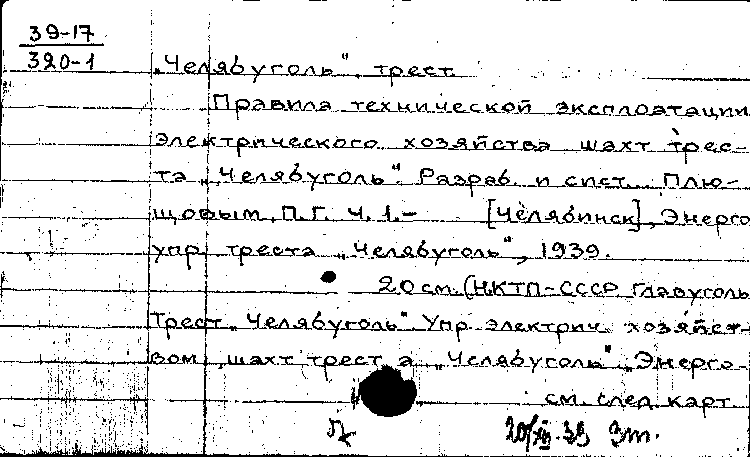 39-17
320-1
„Челябуголь“, трест.
Правила технической эксплоатации
электрического хозяйства шахт трес-
та „Челябуголь“. Разраб. и сист. Плю-
щовым, П.Г. Ч. 1.– [Челябинск], Энерго
упр. треста „Челябуголь“, 1939.
20 см. (НКТП-СССР Главуголь
Трест „Челябуголь“. Упр. электрич. хозяйст-
вом шахт трест а „Челябуголь“ „Энерго-
см. след. карт
20/XII-39 Эт.